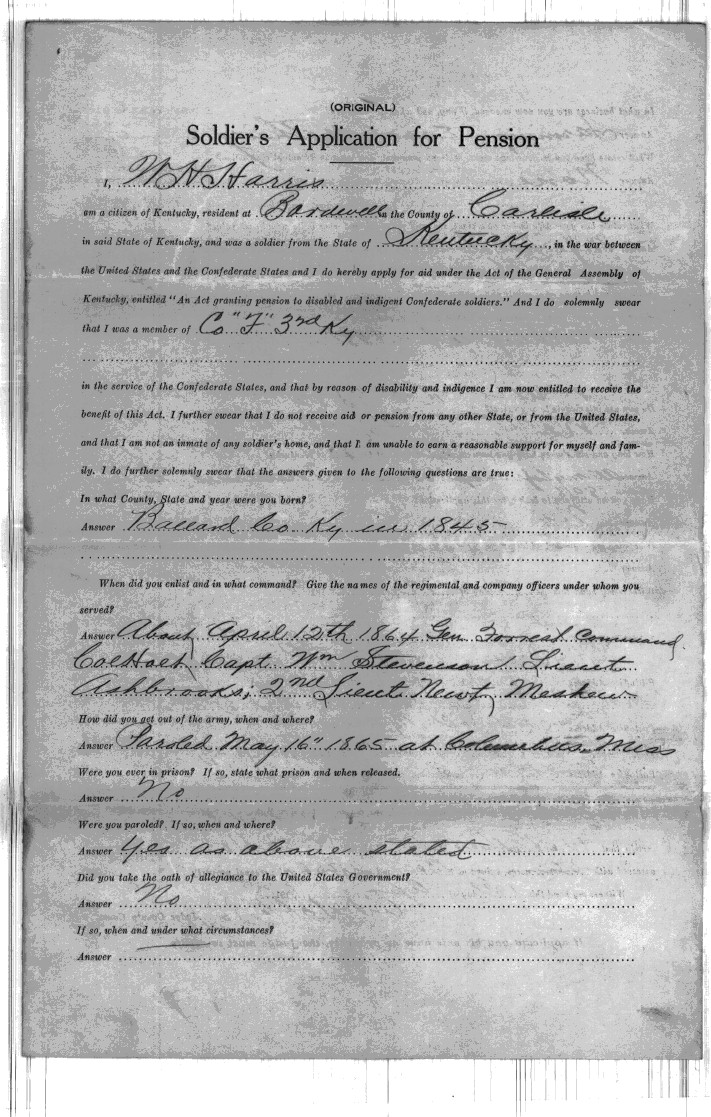 (ORIGINAL)
Soldier's Application for Pension
I, W H Harris
am a citizen of Kentucky, resident at Bardwell in the County of Carlisle
in said State of Kentucky, and was a soldier from the State of Kentucky, in the war between
the United States and the Confederate States and I do hereby apply for aid under the Act of the General Assembly of
Kentucky, entitled "An Act granting pension to disabled and indigent Confederate soldiers." And I do solemnly swear
that I was a member of Co "F" 3rd Ky
in the service of the Confederate States, and that by reason of disability and indigence I am now entitled to receive the
benefit of this Act. I further swear that I do not receive aid or pension from any other State, or from the United States,
and that I am not an inmate of any soldier's home, and that I am unable to earn a reasonable support for myself and fam-
ily. I do further solemnly swear that the answers given to the following questions are true:
In what County, State and year were you born?
Answer Ballard Co Ky in 1845
When did you enlist and in what command? Give the names of the regimental and company officers under whom you
served?
Answer About April 12th 1864 Gen Forrest Command
Col Holt Capt Wm Stevenson Lieut
Ashbrooks; 2nd Lieut Newt Meshew
How did you get out of the army, when and where?
Answer Paroled May 16" 1865 at Columbus Miss
Were you ever in prison? If so, state what prison and when released.
Answer No
Were you paroled? If so, when and where?
Answer Yes as above stated
Did you take the oath of allegiance to the United States Government?
Answer No
If so, when and under what circumstances?
Answer